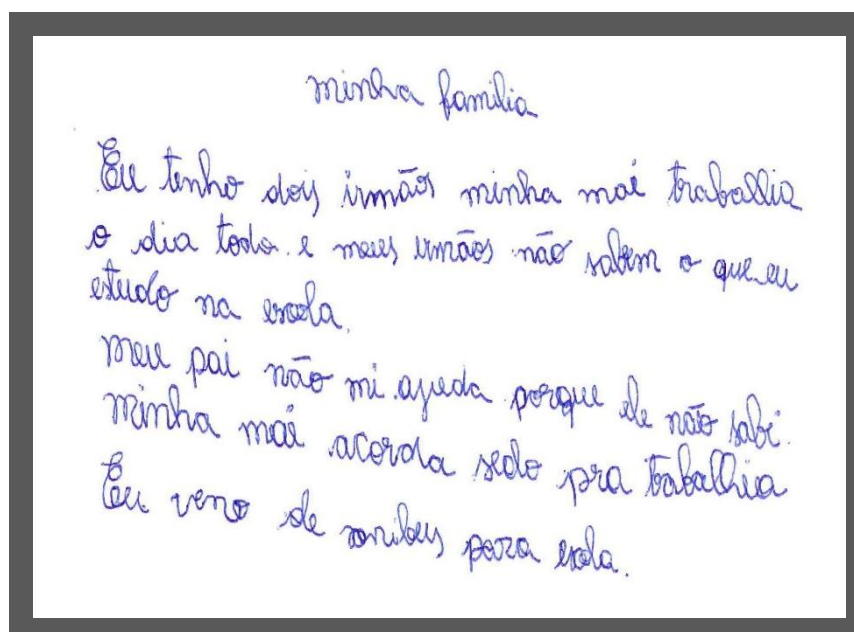 minha familia
Eu tenho dois irmãos minha maē traballia
o dia todo. e meus irmãos não sabem o que eu
estudo na escola.
meu pai não mi ajuda porque ele não sabi.
minha maē acorda sedo pra tabalhia
Eu veno de onibus para escola.